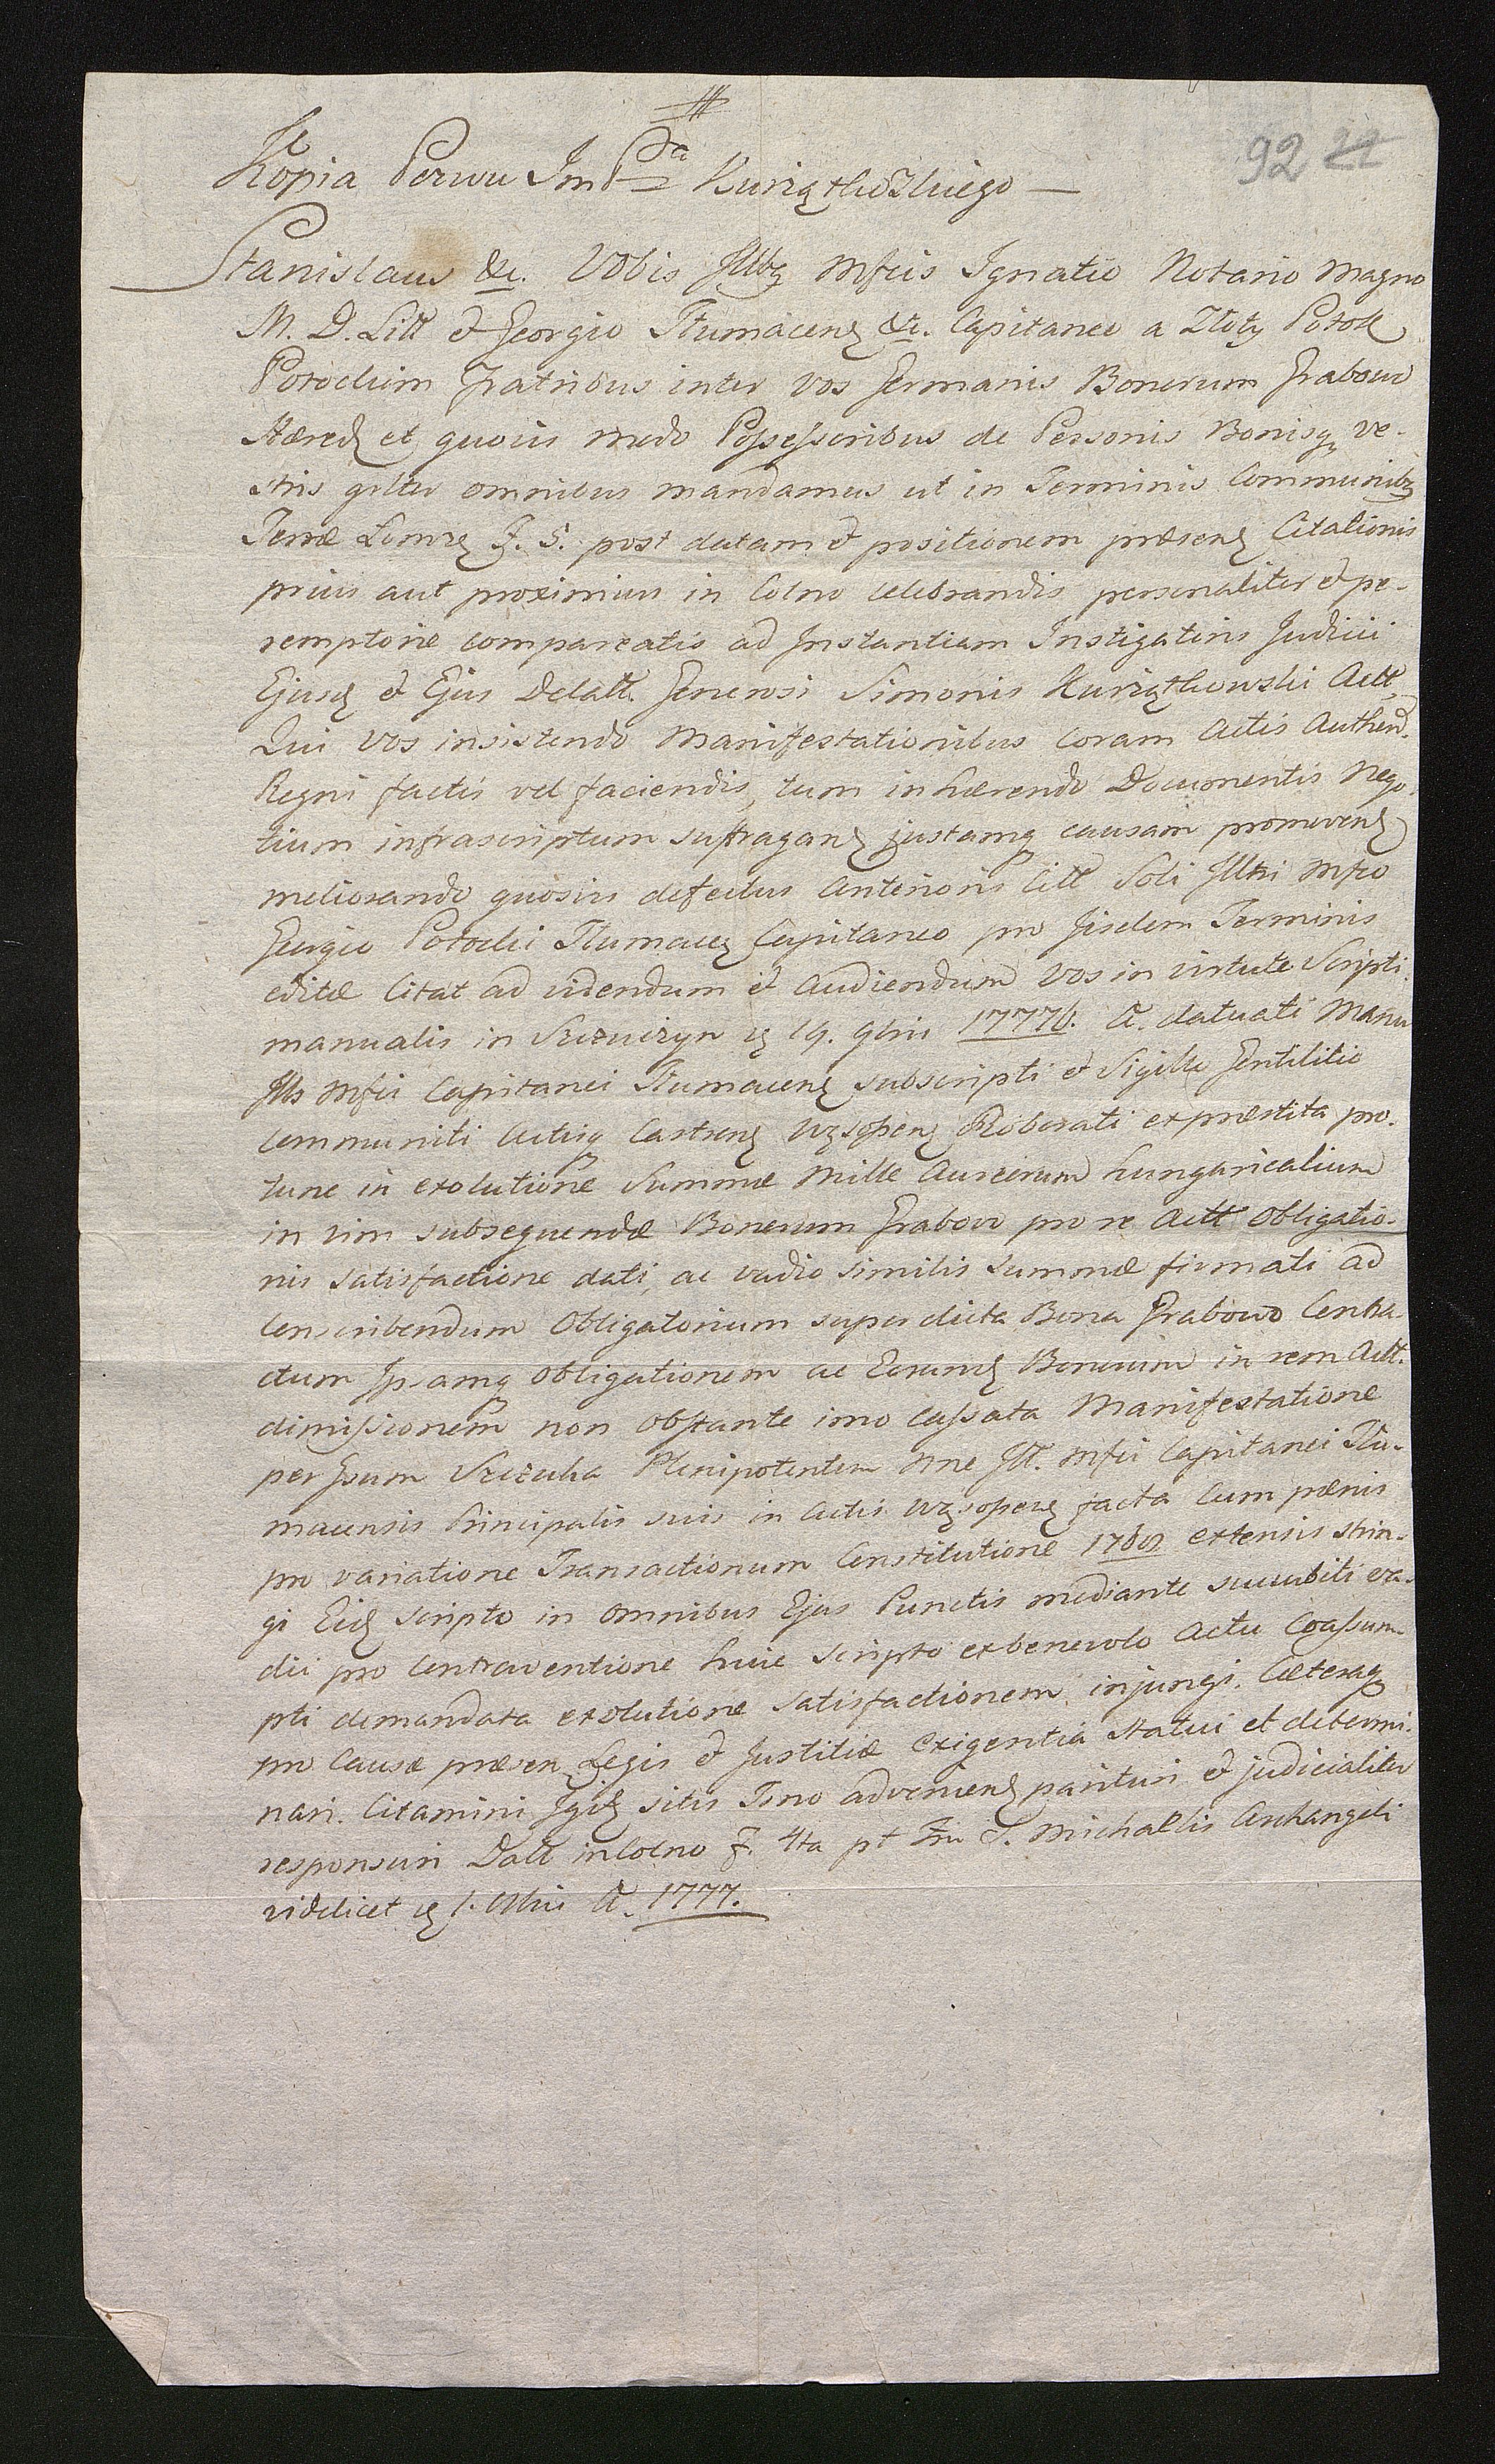 92 22
Kopia Pozwu Jm Pa Kurzątkowskiego
Stanislaus &c. Vobis Illbq Mfcis Ignatio Notario Magno
M. D. Litt et Georgio Tłumacenę &c. Capitaneo a Złoty Potok
Potockim Fratribus inter vos Germanis Bonorum Grabowo
Hæredę et quovis modo Possessoribus de Personis Bonisq ve-
stris gnlter omnibus mandamus ut in Terminis Communibq
Terræ Lomzę F. S. post datam et positionem præsenę Citationis
prius aut proximius in Colno celebrandis personaliter et pe-
remptorie compareatis ad Instantiam Instigatoris Judicii
Ejusę et Ejus Delatt. Generosi Simonis Kurzątkowski Actt.
Qui vos insistendo Manifestationibus coram Actis Authen.
Regni factis vel faciendis, tum inhærendo Documentis Nego-
tium infrascriptum suffraganę justamq causam promovenę
meliorando quosvis defectus Anterioris Citt Soli Illtri Mfco
Georgio Potocki Tłumacę Capitaneo pro Iisdem Terminis
editæ Citat ad videndum et Audiendum Vos in virtute Scripti
manualis in Szczuczyn ę 19. 9bris 1776. A. datuati Manu
Ills Mfci Capitanei Tłumacenę subscripti et Sigillo Gentilitio
Communiti Actisq Castrenę Wąsoszenę Roborati ex præstita pro-
tunc in exolutione Summæ Mille Aureorum hungaricalium
in vim subsequendæ Bonorum Grabowo pro re Actt obligatio-
nis satisfactione dati, ac vadio similis Summæ firmati ad
Conscribendum Obligatorium super dicta Bona Grabowo Contra-
ctum Ipsamq obligationem ac Eorumę Bonorum in rem Actt.
dimissionem non obstante imo cassata Manifestatione
per Gsum Szczuka Plenipotentem Nne Ill. Mfci Capitanei Tłu-
macensis Principalis suis in Actis Wąsoszenę facta Cum pænis
pro variatione Transactionum Constitutione extensis strin-
gi Eidę scripto in omnibus Ejus Punctis mediante succubiti
dii pro Contraventione huic scripto ex benevolo Actu Coassum-
pti demandata exolutione satisfactionem injungi. Cæteraq
pro Causæ præsen Legis et Justitiæ exigentia statui et determi-
nari. Citamini Igię sitis Tmo advenienę parituri et judicialiter
responsuri Datt in Colno F. 4ta pt Fm S. Michaelis Archangeli
videlicet ę 1. 8bris A. 1777.